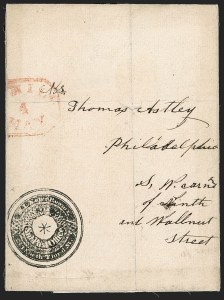 Mr
Thomas Astley
Philadelphia
S. W. corn'r
of Ninth
and Wallnut
Street
4